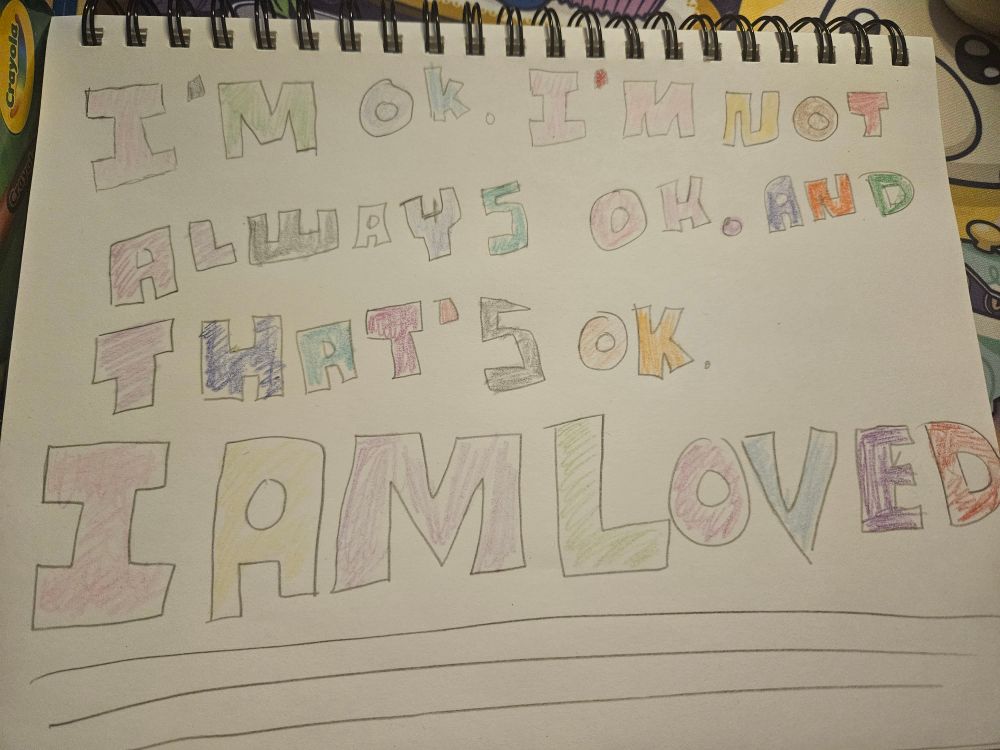 Crayola
I'M OK. I'M NOT
ALWAYS OK. AND
THAT'S OK.
I AM LOVED